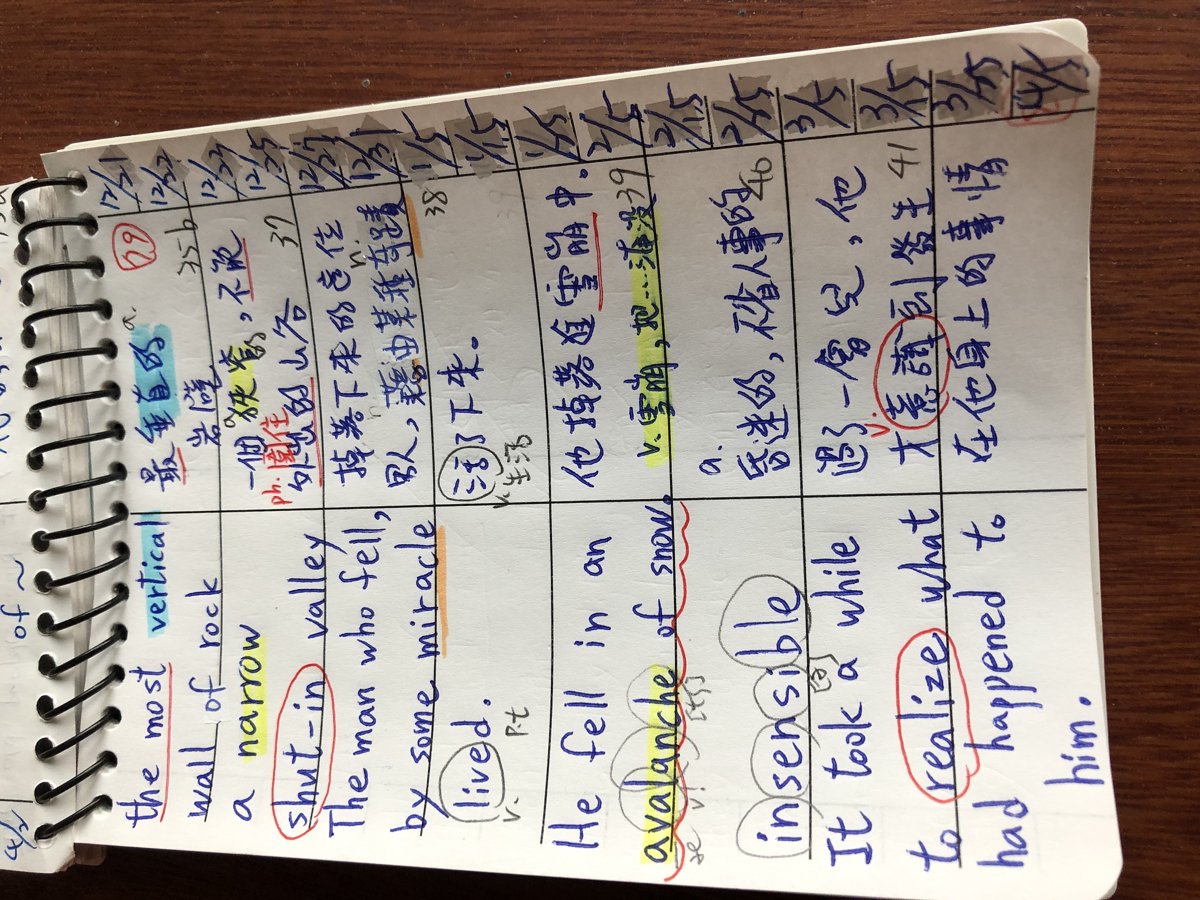 12/21
12/22
12/23
12/25
12/27
12/31
1/5
1/15
1/25
2/5
2/15
2/25
3/5
3/15
3/25
4/5
29
the most vertical
wall of rock
最垂直的 a.
岩壁
35b
a narrow
shut-in valley
一個狹窄的，不敞
ph. 圍住
的山谷
37
The man who fell,
by some miracle
lived.
v. p.t
掉落下來的這位
男人，藉由某種奇蹟
n.
活了下來。
v. 生活
38
39
He fell in an
avalanche of snow.
他掉落進雪崩中。
n. 雪崩，把…淹沒
39
insensible
a.
昏迷的，不省人事的
40
It took a while
to realize what
had happened to
him.
過了一會兒，他
才意識到發生
在他身上的事情
41